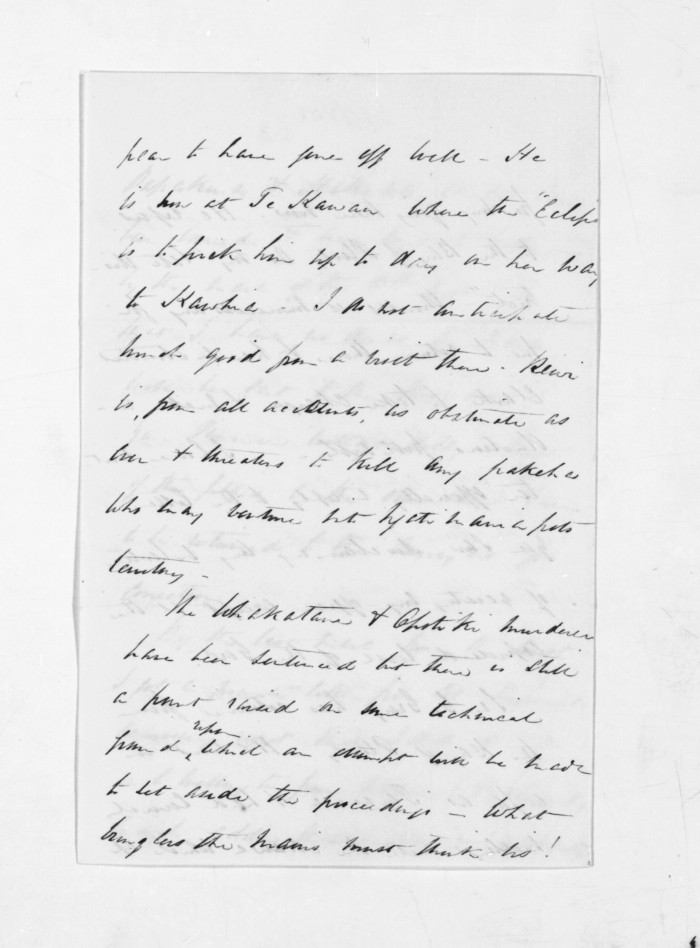 pear to have gone off well - He
is now at Te Kawau where the "Eclipse
is to pick him up to day on her way
to Kawhia I do not anticipate
much good from a visit there - Rewi
is, from all accounts, as obstinate as
ever & threatens to kill any pakehas
who may venture into Ngatimaniapoto
territory -
The Whakatane & Opotiki murderers
have been sentenced but there is still
a point raised on some technical
ground, upon which an attempt will be made
to set aside the proceedings - What
bunglers the Maoris must think us!